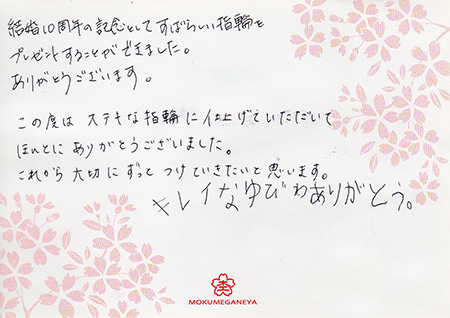 結婚10周年の記念としてすばらしい指輪を
プレゼントすることができました。
ありがとうございます。
この度は ステキな指輪に仕上げていただいて
ほんとにありがとうございました。
これから大切にずっとつけていきたいと思います。
キレイなゆびわありがとう。
MOKUMEGANEYA